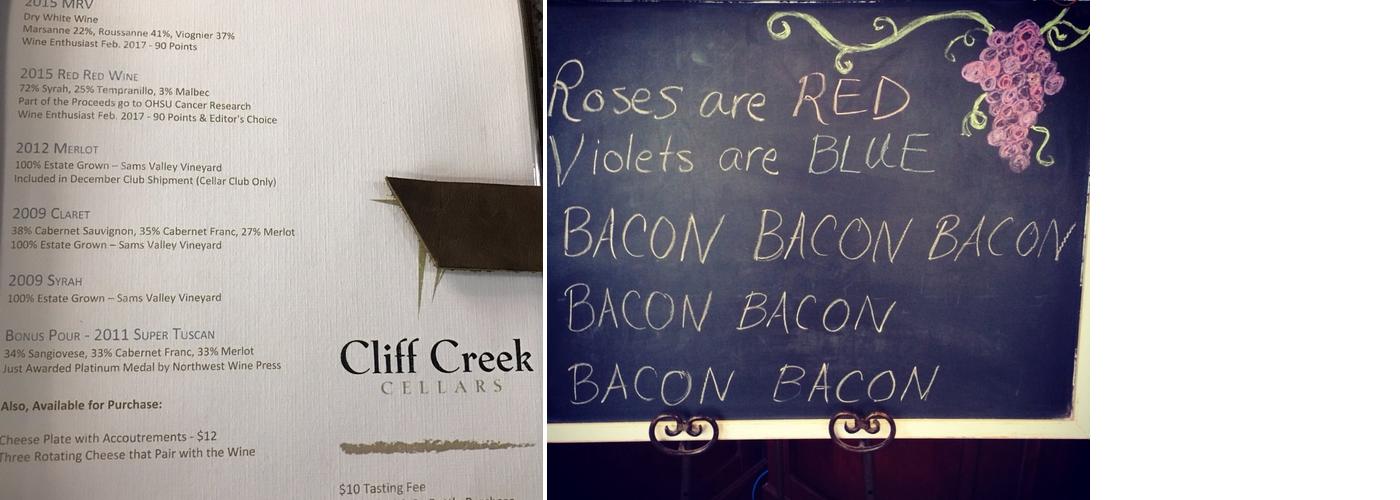 2015 MRV
Dry White Wine
Marsanne 22%, Roussanne 41%, Viognier 37%
Wine Enthusiast Feb. 2017 - 90 Points
2015 Red Red Wine
72% Syrah, 25% Tempranillo, 3% Malbec
Part of the Proceeds go to OHSU Cancer Research
Wine Enthusiast Feb. 2017 - 90 Points & Editor's Choice
2012 Merlot
100% Estate Grown – Sams Valley Vineyard
Included in December Club Shipment (Cellar Club Only)
2009 Claret
38% Cabernet Sauvignon, 35% Cabernet Franc, 27% Merlot
100% Estate Grown – Sams Valley Vineyard
2009 Syrah
100% Estate Grown – Sams Valley Vineyard
Bonus Pour - 2011 Super Tuscan
34% Sangiovese, 33% Cabernet Franc, 33% Merlot
Just Awarded Platinum Medal by Northwest Wine Press
Also, Available for Purchase:
Cheese Plate with Accoutrements - $12
Three Rotating Cheese that Pair with the Wine
Cliff Creek
CELLARS
$10 Tasting Fee
Roses are RED
Violets are BLUE
BACON BACON BACON
BACON BACON
BACON BACON